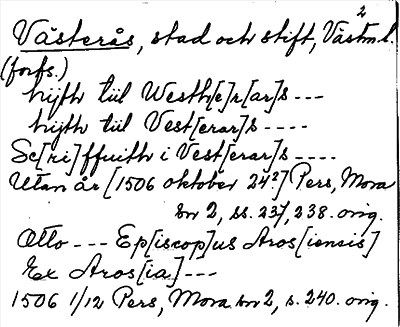 2
Västerås, stad och stift, Västm.l.
(forts.)
hijth till Westh[e]r[ar]s ---
hijth till Vest[erar]s ----
Sc[ri]ffuith i Vest[erar]s ----
Utan år [1506 oktober 24?] Pers, Mora
nr 2, ss. 237, 238. orig.
Otto --- Ep[iscop]us Aros[iensis]
Ex Aros[ia] ---
1506 1/12 Pers, Mora nr 2, s. 240. orig.